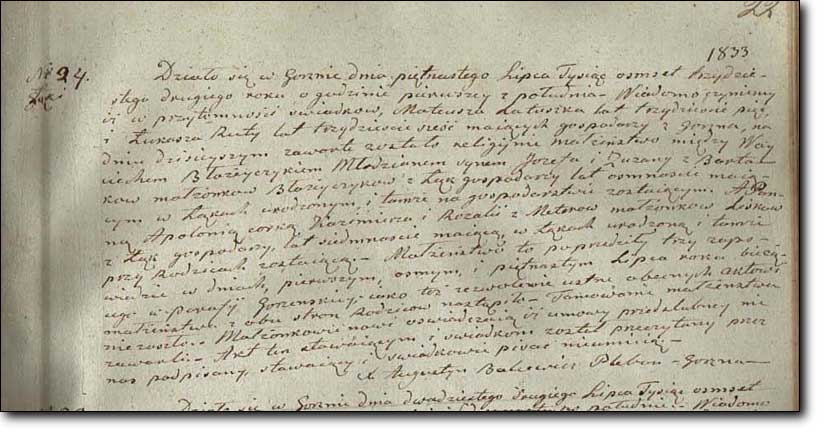 22
1833
No 24. Działo się w Gorznie dnia piętnastego Lipca Tysiąc osmset trzydzie-
Łąki stego drugiego roku o godzinie pierwszey z południa - Wiadomo czyniemy
iż w przytomności swiadkow, Mateusza Łatuszka lat trzydziescie pięć,
i Łukasza Ruty lat trzydziescie szesć maiących gospodarzy z Gorzna, na
dniu dzisieyszym zawarte zostało religijne małżeństwo między Woy
ciechem Błażeyczykiem Młodzianem synem Jozefa i Zuzany z Barta-
kow małżonkow Błażeyczykow z Łąk gospodarzy lat osmnascie maią-
cym w Łąkach urodzonym, i tamże na gospodarstwie zostaiącym. A Pan-
ną Apolonią corką Kazimierza i Rozalii z małżonkow
z Łąk gospodarzy, lat siedmnascie maiącą, w Łąkach urodzoną i tamże
przy Rodzicach zostaiącą. - Małżeństwo to poprzedziły trzy zapo-
wiedzie w dniach, pierwszym, osmym, i piętnastym Lipca roku bieżą-
cego w parafij Gorzenskiey, iako też zezwolenie ustne obecnych aktowi
małżeństwa z obu stron Rodzicow nastąpiło - Tamowanie małżeństwa
niezaszło. Małżonkowie nowi oswiadczaią iż umowy przedslubney nie
zawarli - Akt ten stawaiącym i swiadkom został przeczytany przez
nas podpisany, stawaiący i swiadkowie pisać nieumieią -
X Augustyn Pleban - Gorzna -
Działo się w Gorznie dnia dwudziestego drugiego Lipca Tysiąc osmset
południa - Wiadomo